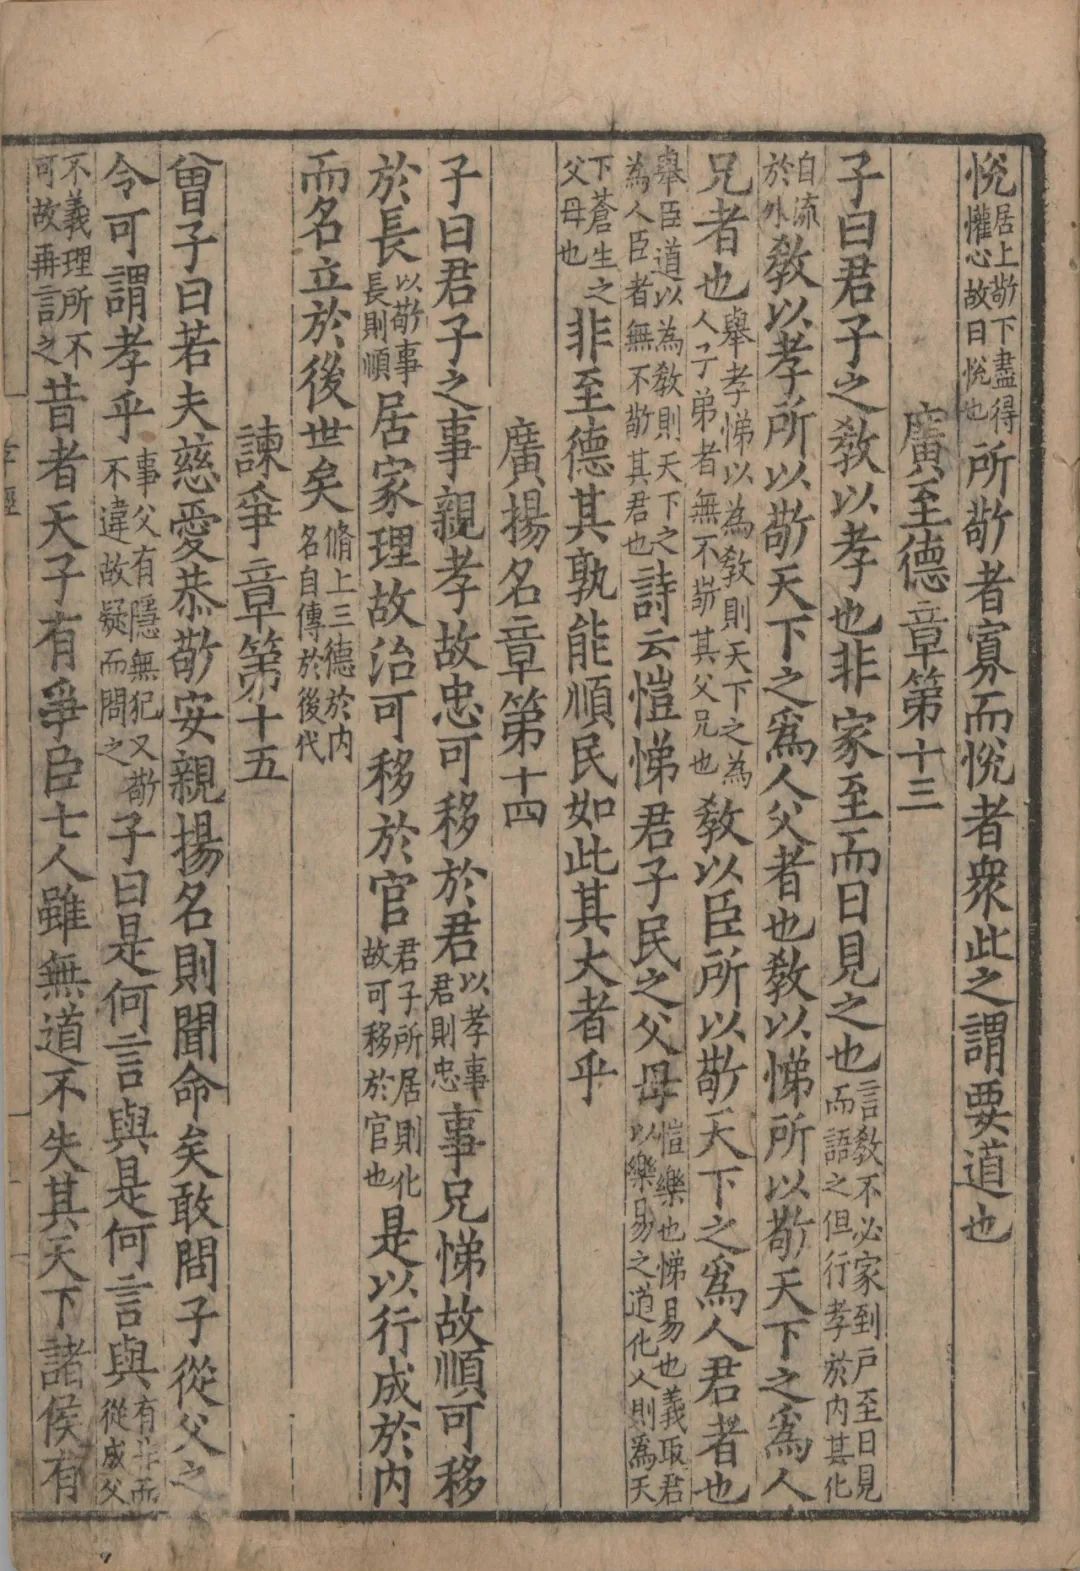 悅居上敬下盡得懽心故曰悅也所敬者寡而悅者衆此之謂要道也
廣至德章第十三
子曰君子之敎以孝也非家至而日見之也言敎不必家到戶至日見而語之但行孝於內其化
自流於外敎以孝所以敬天下之爲人父者也敎以悌所以敬天下之爲人
兄者也舉孝悌以為敎則天下之為人子弟者無不敬其父兄也敎以臣所以敬天下之爲人君者也
舉臣道以為敎則天下之為人臣者無不敬其君也詩云愷悌君子民之父母愷樂也悌易也義取君以樂易之道化人則為天
下蒼生之父母也非至德其孰能順民如此其大者乎
廣揚名章第十四
子曰君子之事親孝故忠可移於君以孝事君則忠事兄悌故順可移
於長以敬事長則順居家理故治可移於官君子所居則化故可移於官也是以行成於内
而名立於後世矣脩上三德於内名自傳於後代
諫爭章第十五
曾子曰若夫慈愛恭敬安親揚名則聞命矣敢問子從父之
令可謂孝乎事父有隱無犯又敬不違故疑而問之子曰是何言與是何言與有非而從成父
不義理所不可故再言之昔者天子有爭臣七人雖無道不失其天下諸侯有